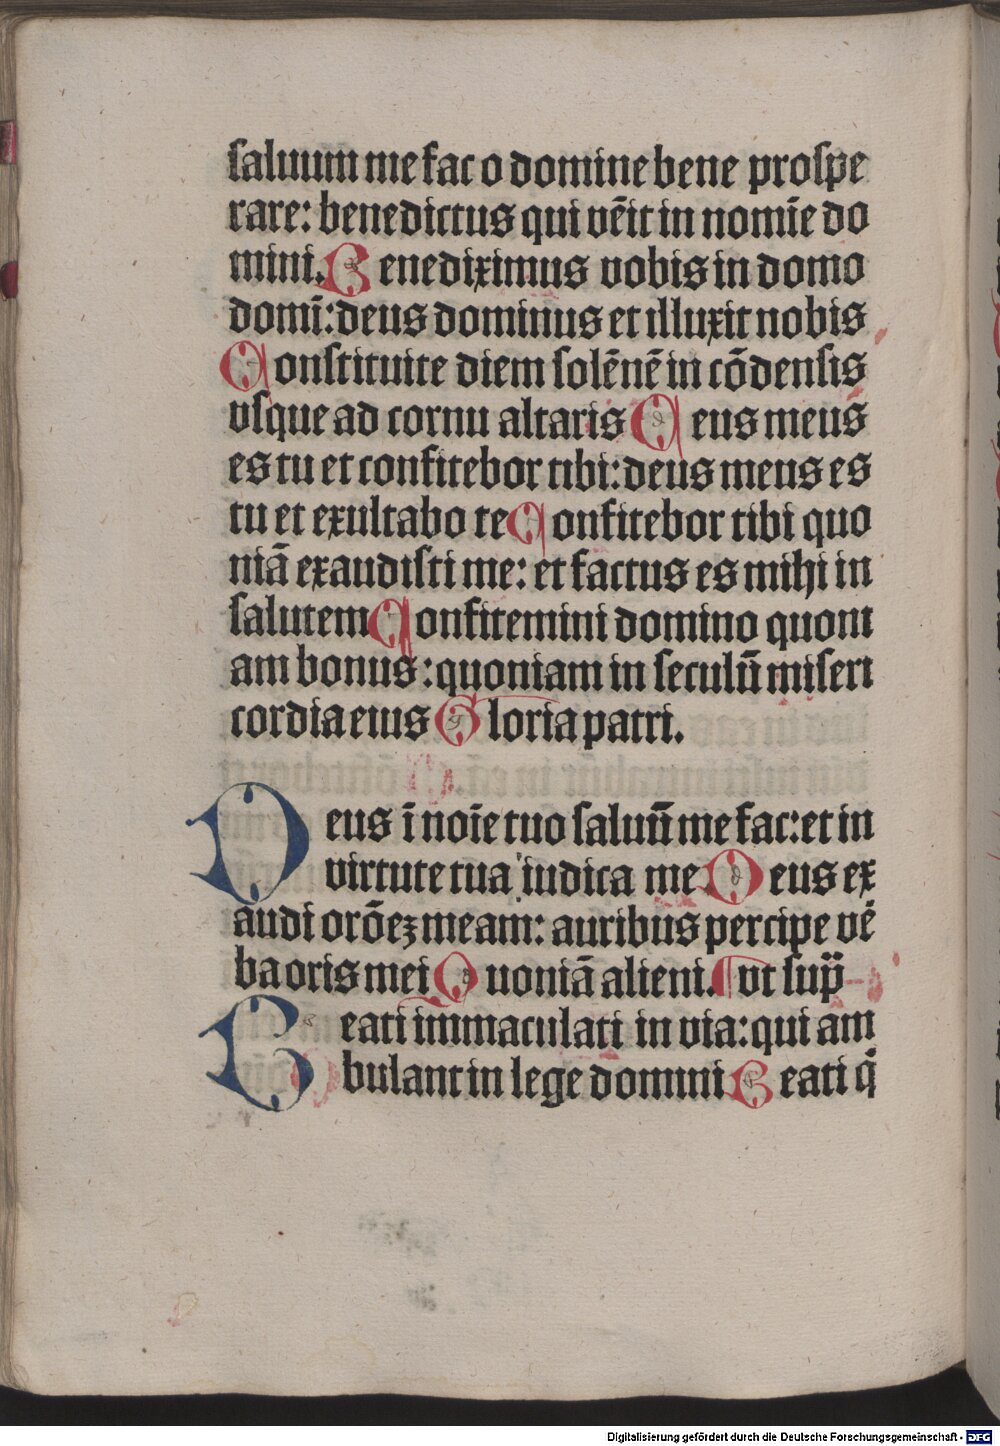 saluum me fac o domine bene prospe
rare: benedictus qui vēit in nomīe do
mini. Benediximus vobis in domo
domī: deus dominus et illuxit nobis
Constituite diem solēnē in cōdensis
vsque ad cornu altaris Deus meus
es tu et confitebor tibi: deus meus es
tu et exultabo te Confitebor tibi quo
niā exaudisti me: et factus es mihi in
salutem Confitemini domino quoni
am bonus: quoniam in seculū miseri
cordia eius Gloria patri.
Deus ī noīe tuo saluū me fac: et in
virtute tua iudica me Deus ex
audi orōeꝫ meam: auribus percipe vē
ba oris mei Quoniā alieni. vt sup̄
Beati immaculati in via: qui am
bulant in lege domini Beati q̇
Digitalisierung gefördert durch die Deutsche Forschungsgemeinschaft - DFG